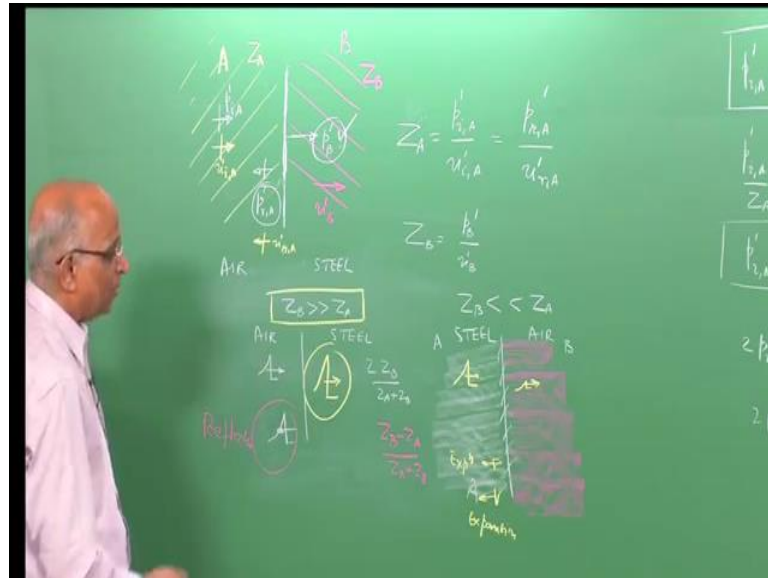 A Z_A B
Z_B
p'_{i,A}
u'_{i,A}
p'_B
u'_B
p'_{r,A}
u'_{r,A}
Z_A = p'_{i,A} / u'_{i,A} = p'_{r,A} / u'_{r,A}
Z_B = p'_B / u'_B
AIR STEEL
Z_B >> Z_A
AIR STEEL
2Z_B / Z_A+Z_B
Z_B-Z_A / Z_A+Z_B
Z_B << Z_A
A STEEL AIR B
Expansion
p'_{i,A}
p'_{i,A} / Z_A
p'_{i,A}